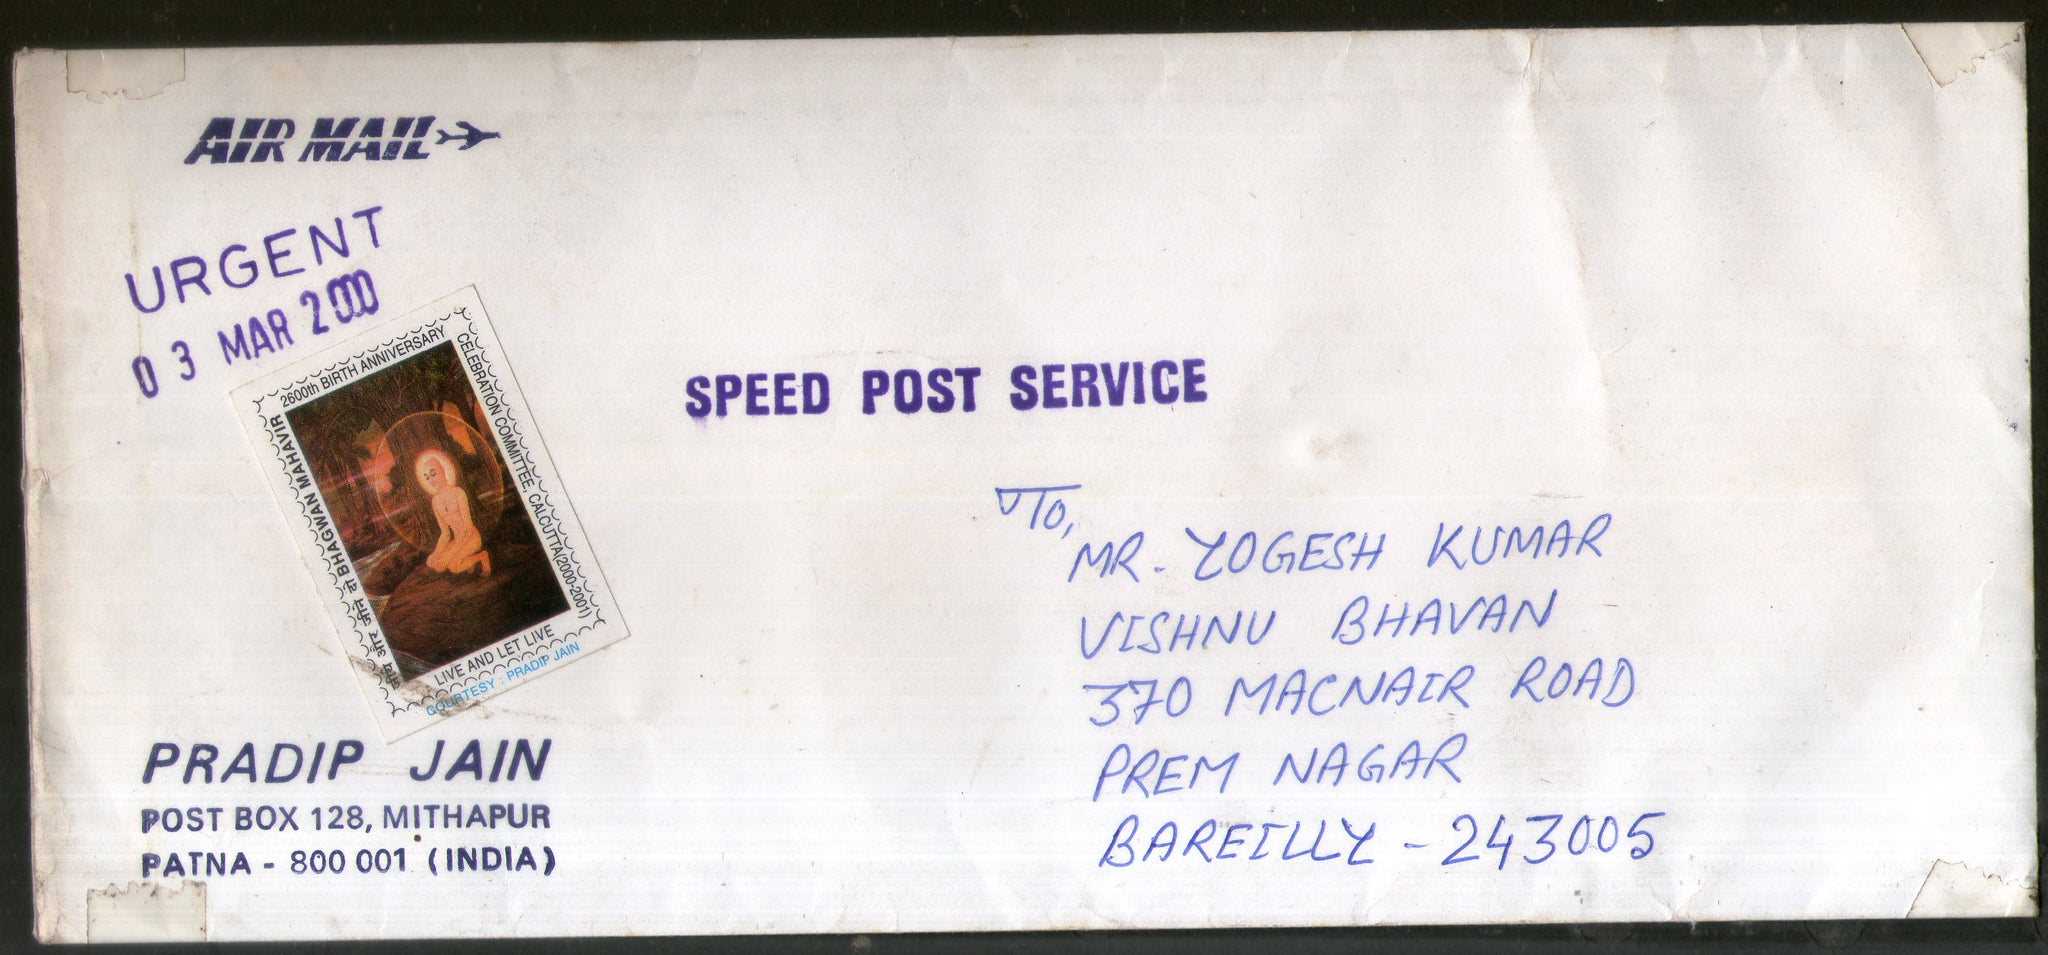 AIR MAIL
URGENT
03 MAR 2000
2600th BIRTH ANNIVERSARY
CELEBRATION COMMITTEE, CALCUTTA(2000-2001)
और जीने दो BHAGWAN MAHAVIR
LIVE AND LET LIVE
COURTESY : PRADIP JAIN
SPEED POST SERVICE
To,
MR. YOGESH KUMAR
VISHNU BHAVAN
370 MACNAIR ROAD
PREM NAGAR
BAREILLY - 243005
PRADIP JAIN
POST BOX 128, MITHAPUR
PATNA - 800 001 (INDIA)